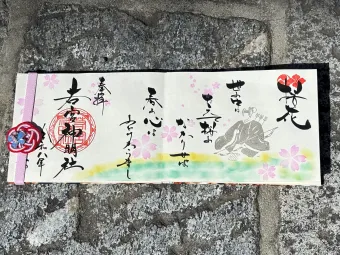 桜花
世の中に
たえて桜の
なかりせば
春の心は
のどけからまし
奉拝
若宮神明社